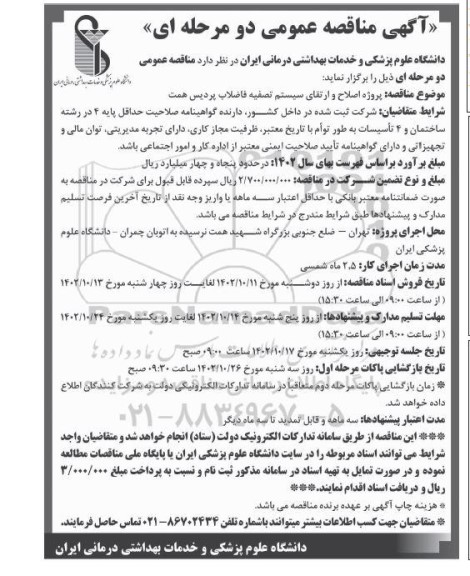 «آگهی مناقصه عمومی دو مرحله ای»
دانشگاه علوم پزشکی و خدمات بهداشتی درمانی ایران
دانشگاه علوم پزشکی و خدمات بهداشتی درمانی ایران در نظر دارد مناقصه عمومی
دو مرحله ای ذیل را برگزار نماید:
موضوع مناقصه: پروژه اصلاح و ارتقای سیستم تصفیه فاضلاب پردیس همت
شرایط متقاضیان: شرکت ثبت شده در داخل کشور، دارنده گواهینامه صلاحیت حداقل پایه ۴ در رشته
ساختمان و ۴ تأسیسات به طور توأم با تاریخ معتبر، ظرفیت مجاز کاری، دارای تجربه مدیریتی، توان مالی و
تجهیزاتی و دارای گواهینامه تأیید صلاحیت ایمنی معتبر از اداره کار و امور اجتماعی باشد.
مبلغ برآورد براساس فهرست بهای سال ۱۴۰۲: در حدود پنجاه و چهار میلیارد ریال
مبلغ و نوع تضمین شرکت در مناقصه: ۲/۷۰۰/۰۰۰/۰۰۰ ریال سپرده قابل قبول برای شرکت در مناقصه به
صورت ضمانتنامه معتبر بانکی با حداقل اعتبار سه ماهه یا واریز وجه نقد از تاریخ آخرین فرصت تسلیم
مدارک و پیشنهادها طبق شرایط مندرج در شرایط مناقصه می باشد.
محل اجرای پروژه: تهران – ضلع جنوبی بزرگراه شهید همت نرسیده به اتوبان چمران – دانشگاه علوم
پزشکی ایران
مدت زمان اجرای کار: ۲.۵ ماه شمسی
تاریخ فروش اسناد مناقصه: از روز دوشنبه مورخ ۱۴۰۲/۱۰/۱۱ لغایت روز چهار شنبه مورخ ۱۴۰۲/۱۰/۱۳
( از ساعت ۰۹:۰۰ الی ساعت ۱۵:۳۰)
مهلت تسلیم مدارک و پیشنهادها: از روز پنج شنبه مورخ ۱۴۰۲/۱۰/۱۴ لغایت روز یکشنبه مورخ ۱۴۰۲/۱۰/۲۴
( از ساعت ۰۹:۰۰ الی ساعت ۱۵:۳۰)
تاریخ جلسه توجیهی: روز یکشنبه مورخ ۱۴۰۲/۱۰/۱۷ ساعت ۰۹:۰۰ صبح
تاریخ بازگشایی پاکات مرحله اول: روز سه شنبه مورخ ۱۴۰۲/۱۰/۲۶ ساعت ۰۹:۳۰ صبح
* زمان بازگشایی پاکات مرحله دوم متعاقباً در سامانه تدارکات الکترونیکی دولت به شرکت کنندگان اطلاع
داده خواهد شد.
۰۲۱-۸۸۳۴۹۶۷۰-۵
مدت اعتبار پیشنهادها: سه ماهه و قابل تمدید تا سه ماه دیگر
*** این مناقصه از طریق سامانه تدارکات الکترونیک دولت (ستاد) انجام خواهد شد و متقاضیان واجد
شرایط می توانند اسناد مربوطه را در سایت دانشگاه علوم پزشکی ایران یا پایگاه ملی مناقصات مطالعه
نموده و در صورت تمایل به تهیه اسناد در سامانه مذکور ثبت نام و نسبت به پرداخت مبلغ ۳/۰۰۰/۰۰۰
ریال و دریافت اسناد اقدام نمایند.***
* هزینه چاپ آگهی بر عهده برنده مناقصه می باشد.
* متقاضیان جهت کسب اطلاعات بیشتر میتوانند با شماره تلفن ۸۶۷۰۲۴۳۴-۰۲۱ تماس حاصل فرمایند.
دانشگاه علوم پزشکی و خدمات بهداشتی درمانی ایران